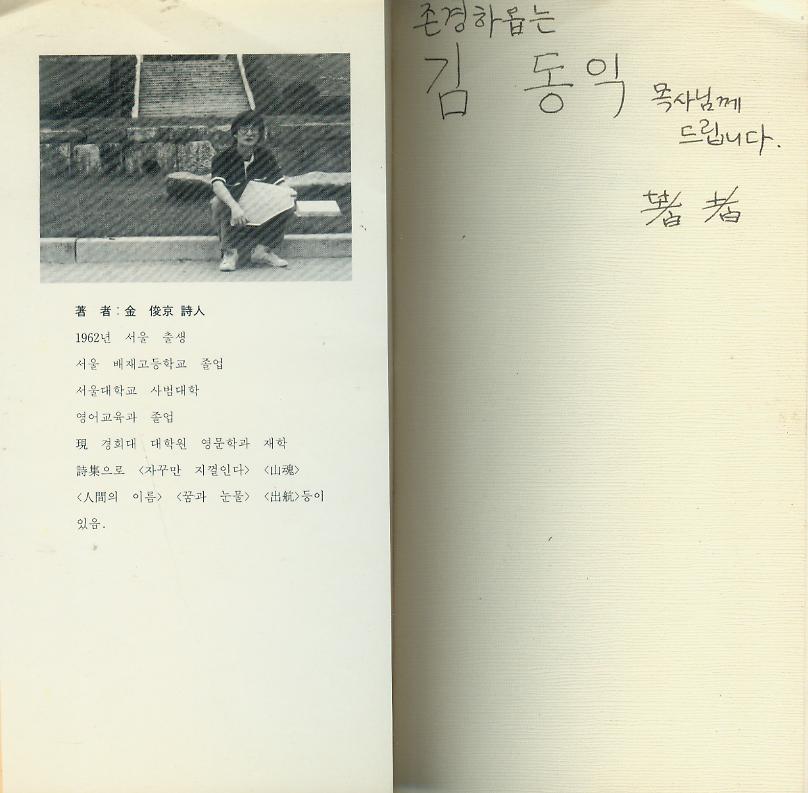 著 者 : 金 俊京 詩人
1962년 서울 출생
서울 배재고등학교 졸업
서울대학교 사범대학
영어교육과 졸업
現 경희대 대학원 영문학과 재학
詩集으로 <자꾸만 지껄인다> <山魂>
<人間의 이름> <꿈과 눈물> <出航>등이
있음.
존경하옵는
김 동익 목사님께
드립니다.
著者